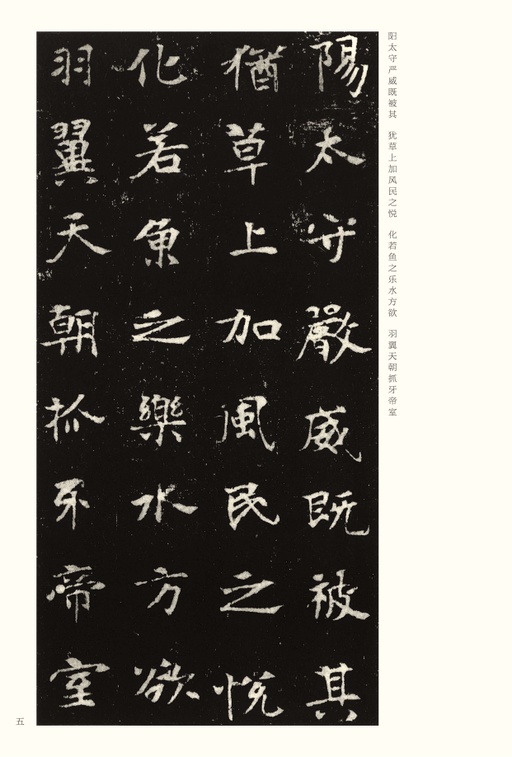 阳太守严威既被其 犹草上加风民之悦 化若鱼之乐水方欲 羽翼天朝抓牙帝室
陽太守嚴威既被其
猶草上加風民之悅
化若魚之樂水方欲
羽翼天朝抓牙帝室
五